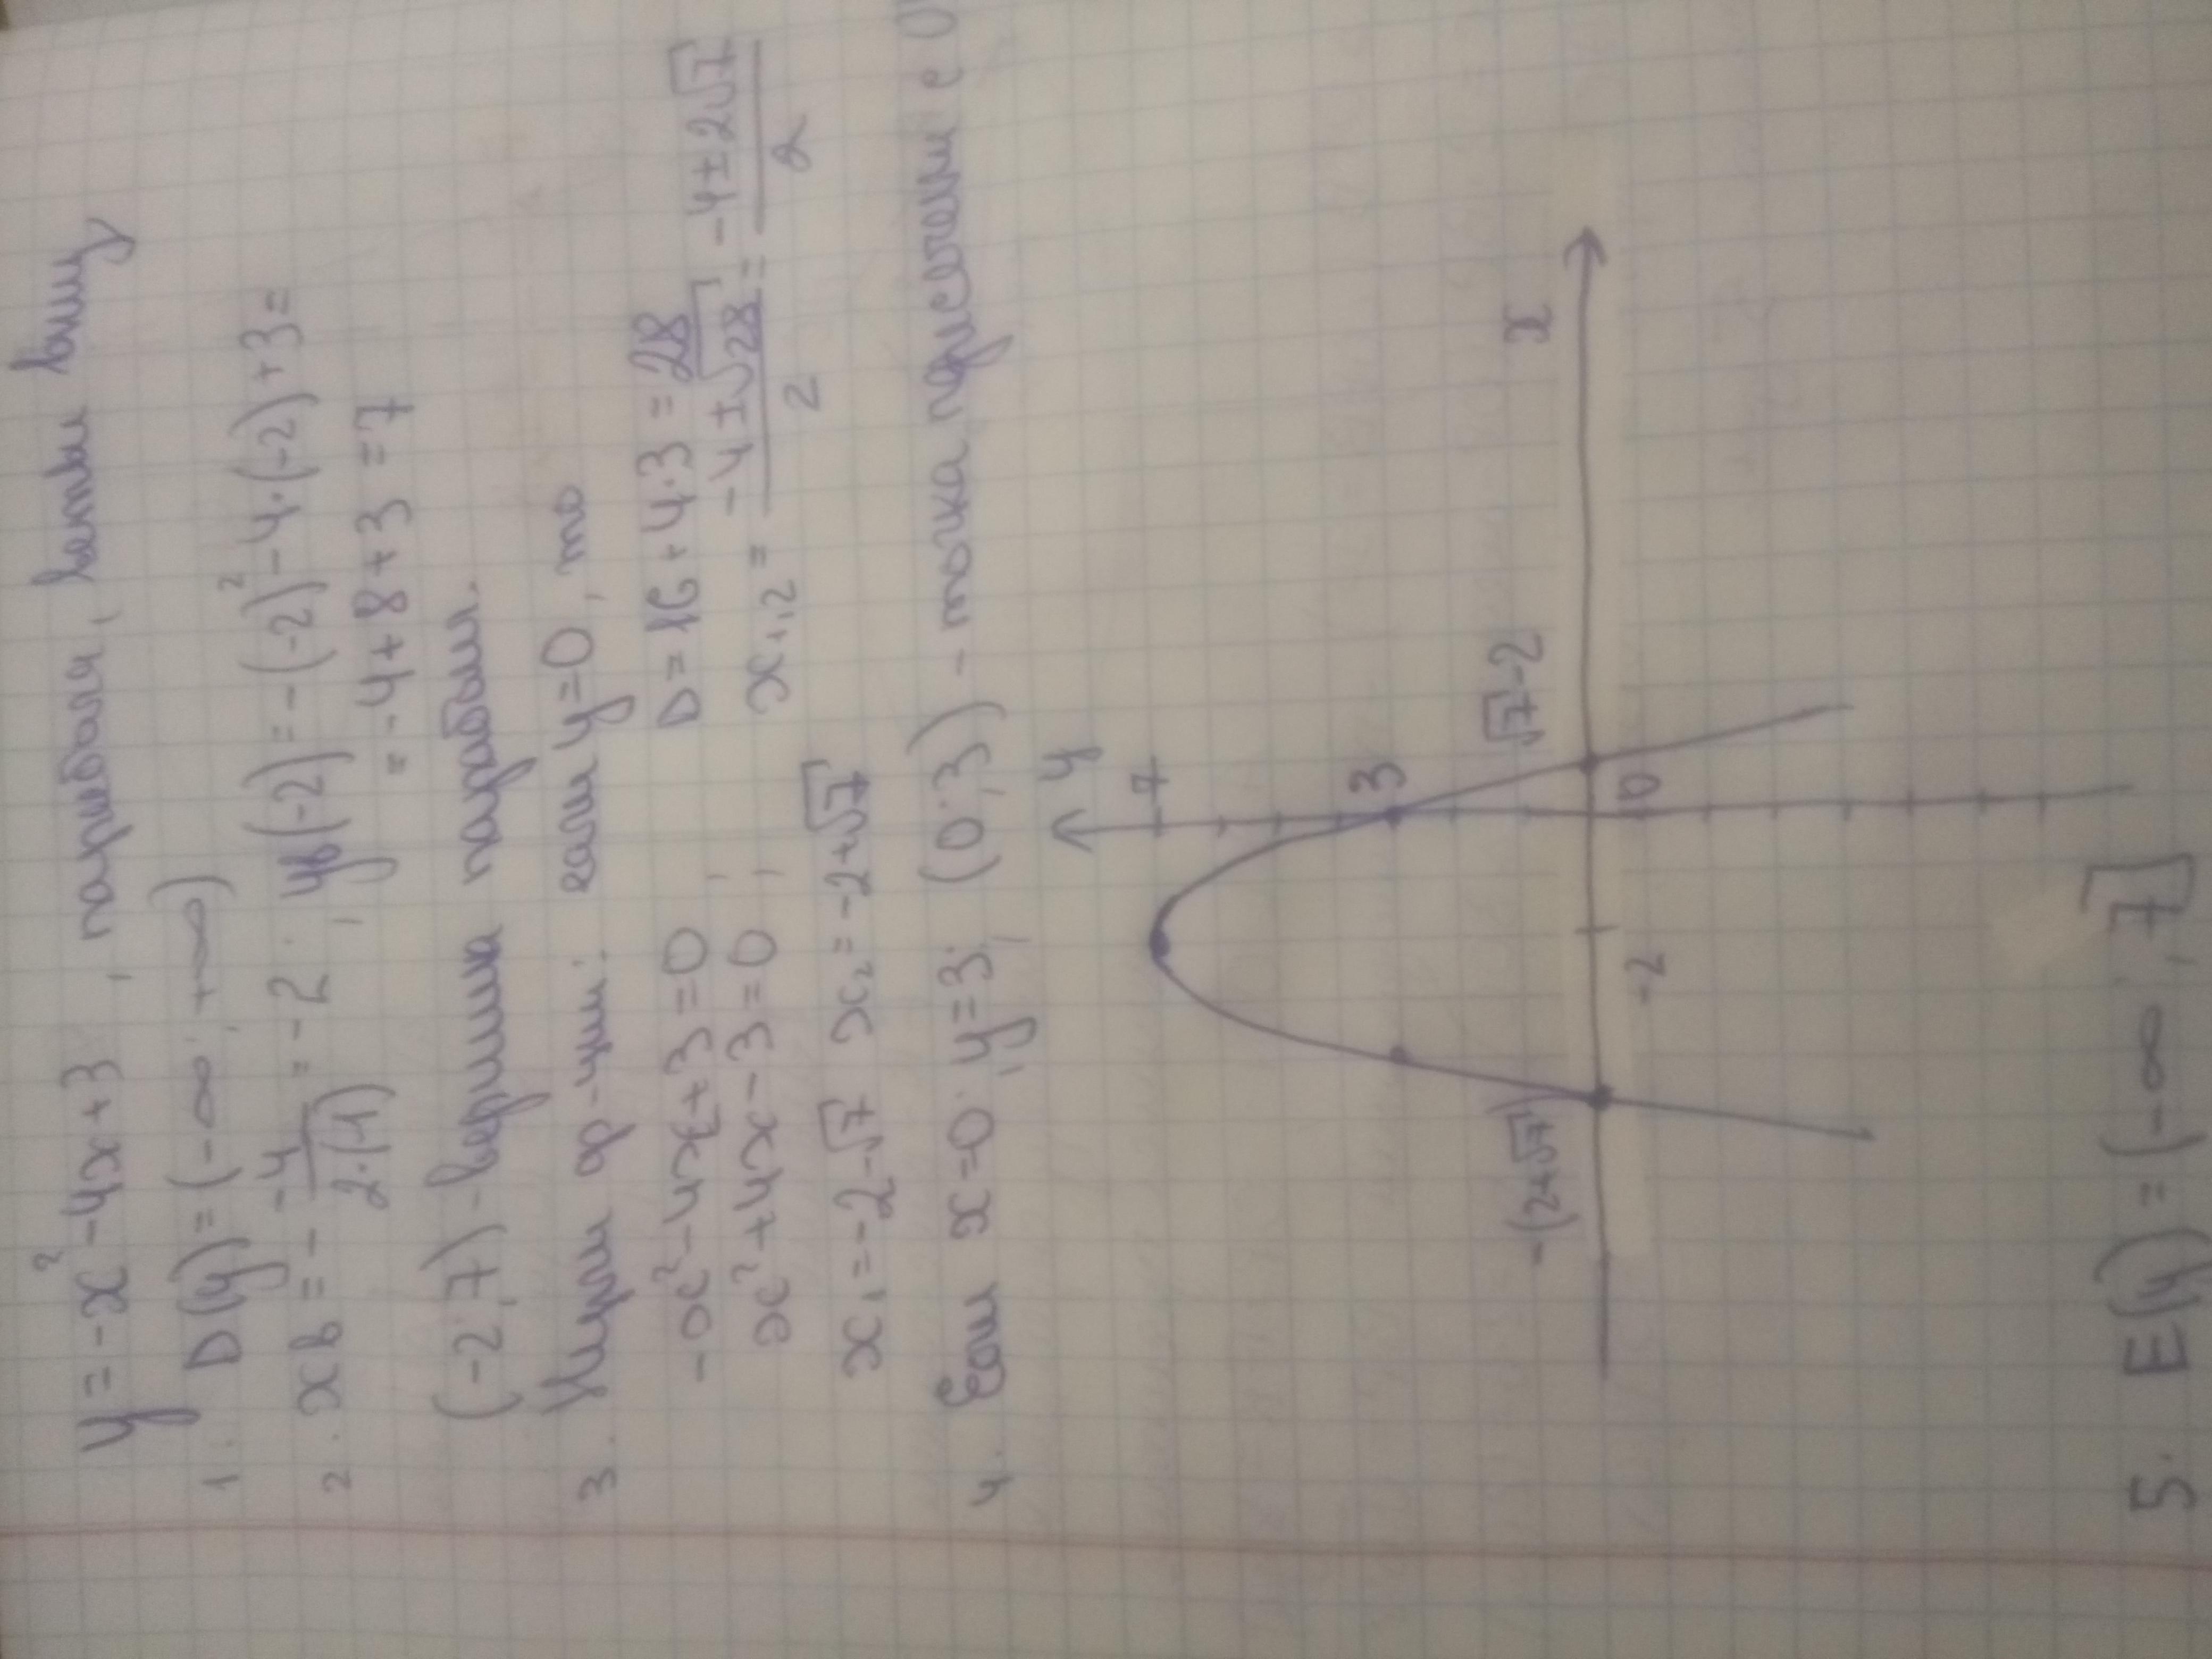 y = -x² - 4x + 3, парабола, ветви вниз
1. D(y) = (-∞; +∞)
2. xв = - -4/2·(-1) = -2; yв(-2) = -(-2)² - 4·(-2) + 3 =
= -4 + 8 + 3 = 7
(-2; 7) - вершина параболы.
3. Нули ф-ции: если y = 0, то
-x² - 4x + 3 = 0; D = 16 + 4·3 = 28
x² + 4x - 3 = 0; x1,2 = -4±√28/2 = -4±2√7/2
x₁ = -2-√7 x₂ = -2+√7
4. Если x=0; y=3; (0; 3) - точка пресечения с
y
7
3
-(2+√7) √7-2 x
-2 0
5. E(y) = (-∞; 7]